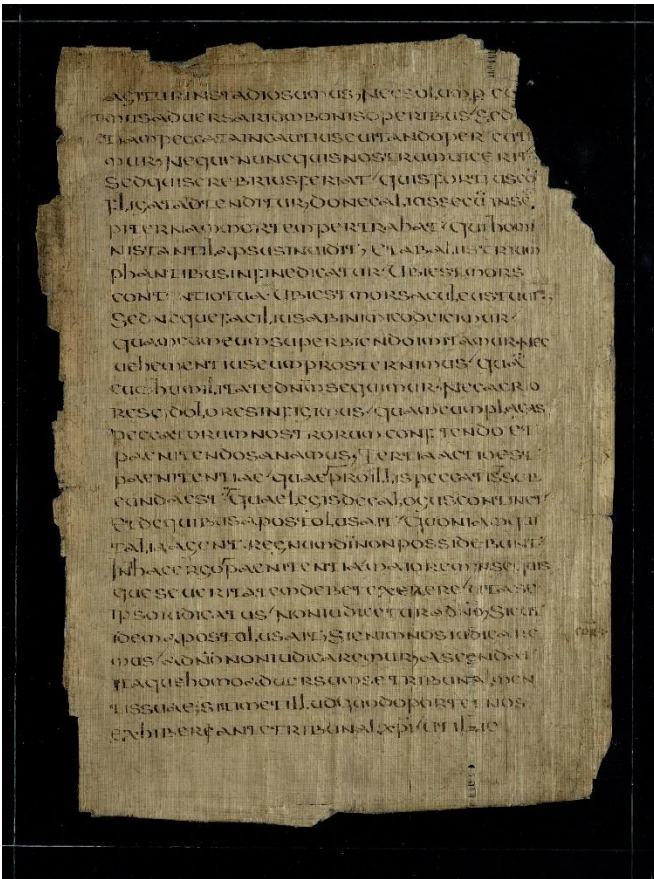 AGITURINSTADIOSUMUS, NECSOLUMP CU
TIMUSADUERSARIUMBONISOPERIBUS, SED
TIAMPECCATAINCAUTIUSEUITANDOPERCUTI
MUR, NEQUENUNCQUISNOSTRUMUICERIT
SEDQUISCREBRIUSFERIAT, QUISFORTIUSCŌ
FLIGATADTENDITUR, DONECALIUSSECŪINSĒ
PITERNAMMORTEMPERTRAHAT, QUIHOMI
NISTANTILAPSUSINUIDIT, ETABALIISTRIUM
PHANTIBUSINFINEDICATUR, UBIESTMORS
CONTENTIOTUA, UBIESTMORSACULEUSTUUS,
SEDNEQUEFACILIUSABINIMICODEICIMUR,
QUAMCUMEUMSUPERBIENDOIMITAMUR, NEC
UEHEMENTIUSEUMPROSTERNIMUS, QUĀ
CUMHUMILITATEDNMSEQUIMUR, NECACRIO
RESEIDOLORESINFIGIMUS, QUAMCUMPLAGAS
PECCATORUMNOSTRORUMCONFITENDOET
PAENITENDOSANAMUS, TERTIAACTIOEST
PAENITENTIAE, QUAEPROILLISPECCATISSUB
EUNDAEST, QUAELEGISDECALOGUSCONTINET
ETDEQUIBUSAPOSTOLUSAIT, QUONIAMQUI
TALIAAGUNT, REGNUMDĪNONPOSSIDEBUNT,
INHACERGOPAENITENTIAMAIOREMINSEQUIS
QUESEUERITATEMDEBETEXERERE, UTASE
IPSOIUDICATUS, NONIUDICETURADNŌ, SICUT
IDEMAPOSTOLUSAIT, SIENIMNOSIUDICARE
MUS, ADNŌNONIUDICAREMUR, ASCENDAT
ITAQUEHOMOADUERSUMSETRIBUNALMEN
TISSUAE, SITIMETILLUDQUODOPORTETNOS
EXHIBERIANTETRIBUNALXPĪ, UTILLIC